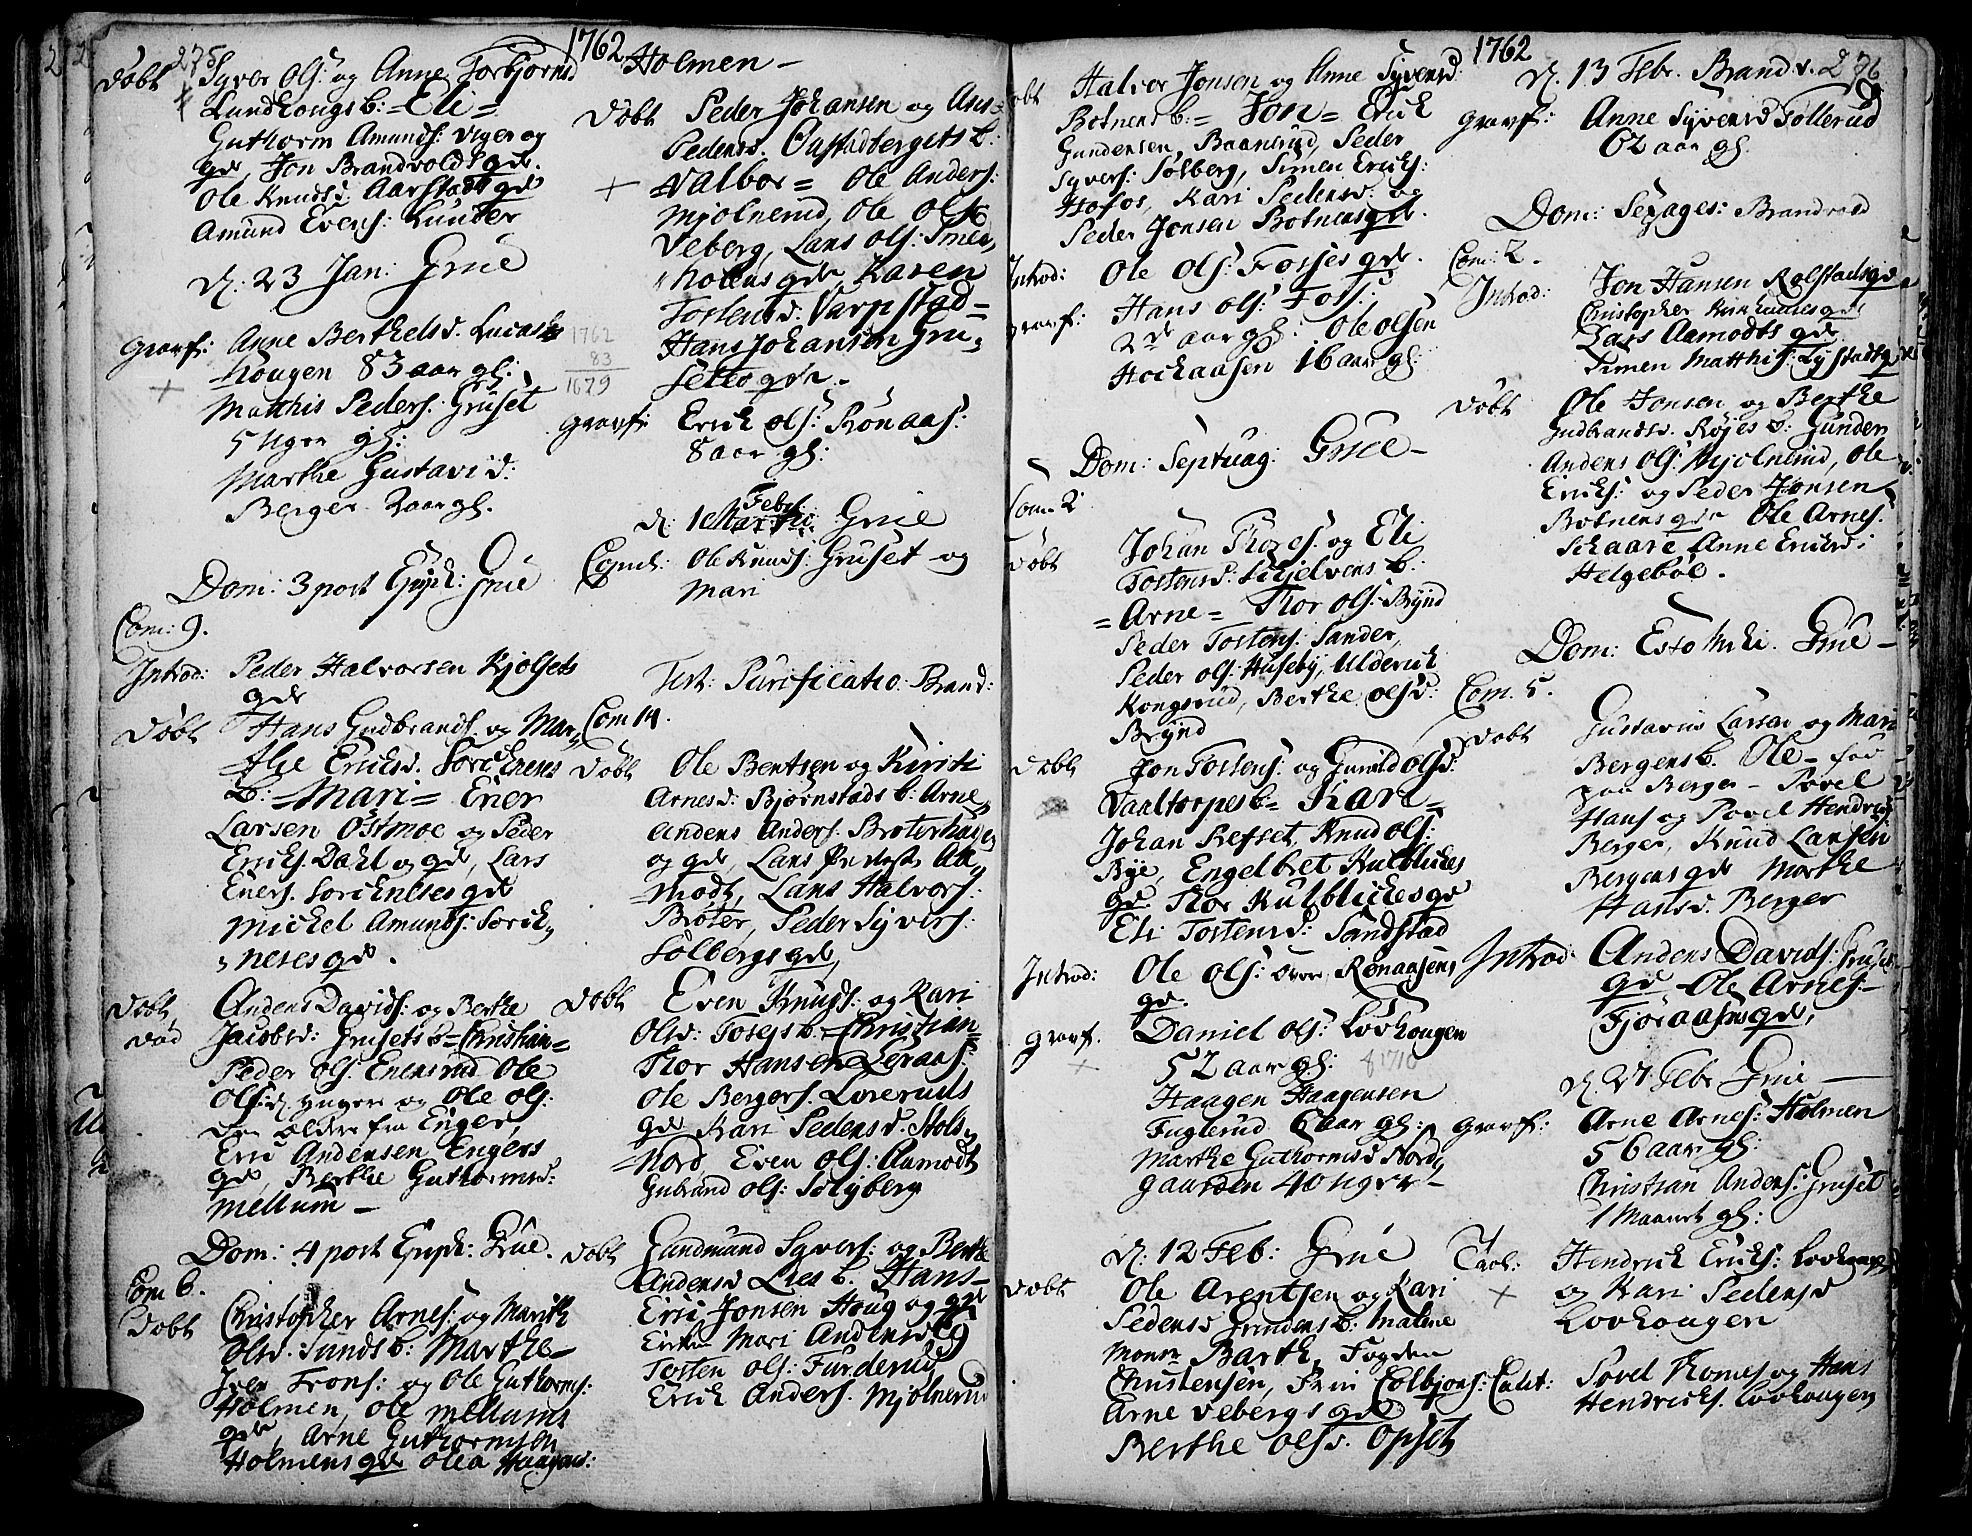 275
1762
Døbt Syver Ols: og Anne Torbjørnsd
Lundhougs b: =Eli=
Guthorm Amunds: Viger og
gde, Jon Brandvolds gde.
Ole Knuds: Aarstads gde
Amund Evens: Kunder
d. 23 Jan: Grue
Gravf: Anne Berthelsd. Lucas
hougen 83 aar gl:
Matthis Peders: Gruset
5 uger gl:
Marthe Gustavid:
Berger 2 aar gl.
Dom: 3 post Epiph: Grue
Com: 9.
Introd: Peder Halvorsen Kjølsets
gde
Døbt Hans Gudbrands: og Mar„
the Ericksd.
b: =Mari= Ener
Larsen Østmoe og Peder
Ericks. Dahl og gde, Lars
Eners. gde
Mickel Amunds:
gde.
Døbt Anders Davids: og Berthe
død Jacobsd: Grusets b =Christian=
Peder Ols. Enersrud Ole
Ols: d. yngere og Ole Ols:
den ældre fra Enger,
Eric Andersen Engers
gde, Berthe Guthormsd:
Mellum —
Dom: 4 post Epiph: Grue.
Com 6.
Døbt Christopher Arnes: og Marithe
Olsd. Sunds b: Marthe—
Iver Trons: og Ole Guthorms:
Holmen, Ole Mellums
gde, Arne Guthormsen
Holmens gde Olea Haagens:
Holmen —
Døbt Peder Johansen og Ases
Pedersd. Opstadbergets b:
=Valbor= Ole Anders:
Mjølnerud, Ole Ols:
Veberg, Lars Ols: Smed„
holens gde, Karen
Tostensd. Varpstad=
1762
83
1679
Hans Johansen Gru„
sets gde.
Gravf: Erick Ols: Rønaas:
8 aar gl:
d. 1 Febr: Grue
Copul: Ole Knuds: Gruset og
Mari
Fest: Purificatio: Brand:
Com 14.
Døbt Ole Bentsen og Kirsti
Arnesd: Bjørnstads b: Arne„
Anders Anders: Broterhagen
og gde, Lars Aa„
modt, Lars Halvors:
Brøter, Peder Syvers:
Solbergs gde,
Døbt Even Knuds: og Kari
Olsd: Tosens b. =Christian=
Thor Hansen
Ole Bergers.
gde Kari Pedersd. Hols„
Nord, Even Ols: Aamodt
Gubrand Ols: Solyberg
Døbt Gundmund Syvers: og Berthe
Andersd Lies b. Hans—
Eric Jonsen Houg og gde
Mari Andersd
Tosten Ols: Furderud
Erick Anders. Mjølnerud
1762
276
Døbt Halvor Jonsen og Anne Syversd.
Botnens b: =Jon= Erick
Gundersen, Baanrud, Peder
Syvers: Solberg, Simen Ericks:
Hofos, Kari Pedersd. og
Peder Jonsen Botnens gde.
Introd: Ole Ols: Fosses gde.
Gravf: Hans Ols: Foss:
2 aar gl: Ole Olsen
Hochaasen 16 aar gl:
Dom: Septuag: Grue—
Com: 2
Døbt Johan Thores: og Eli
Tostensd: b:
=Arne= Thor Ols: Brynd
Peder Tostens: Sander,
Peder Ols: Huseby, Ulderick
Kongsrud, Berthe Olsd:
Brynd
Døbt Jon Tostens: og Gunild Olsd:
Vaaltorpes b= Kari=
Johan Refset, Knud Ols:
Bye, Engelbret Kulblickes
gde Thor Kulblickes gde
Eli Tostensd: Sandstad
Introd: Ole Ols: over Rønaasens
gde.
Gravf. Daniel Ols: Lovhougen
52 aar gl: f 1710
Haagen Haagensen
Fuglerud 6 aar gl:
Marthe Guthormsd Nord„
gaarden 40 uger—
d: 12 Feb: Grue
Døbt Ole Arentsen og Kari
Pedersd Grindens b: Malene
Monsr Barth, Fogden
Christensen, Colbjøns:
Arne Vebergs gde
Berthe Olsd. Opset
d. 13 Febr. Brandv.
Gravf: Anne Syversd Tøllerud
62 aar gl.
Dom: Sexages: Brandvold
Com: 2.
Introd: Jon Hansen Rølstads gde
Christopher gde
Lars Aamodts gde
Simen Matthis: Lystads gde
Døbt Ole Jonsen og Berthe
Gudbrandsd. Røjes b: Gunder
Anders Ols: Mjølnerud, Ole
Ericks: og Peder Jonsen
Botnens gde Ole Arnes:
Schaare Anne Ericksd:
Helgebøl.
Dom: Esto Mihi. Grue—
Com. 5.
Døbt Gustavus Larsen og Mari
Bergers b. Ole— fød
paa Berger— Povel
Hans og Povel Hendricks
Berger, Knud Larsen
Bergers gde Marthe
Hansd. Berger
Introd Anders Davids: Gruset
gde Ole Arnes:
Fjøraasens gde,
d. 27 Febr Grue —
Gravf: Arne Arnes: Holmen
56 aar gl:
Christian Anders: Gruset
1 Maanet gl:
Trol: Hendrick Ericks: Lovhougen
og Kari Pedersd
Lovhougen
Calut: Povel Thomes og Hans
Hendricks. Lovhougen